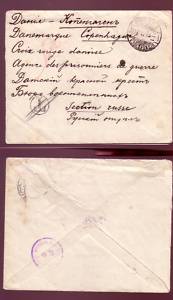 Данiя - Копенгагенъ
Danemarque Copenhague
Croix rouge danoise
Agence des prisonniers de guerre
Датскiй красный крестъ
Бюро военноплѣнныхъ
Section russe
Русскiй отдѣлъ